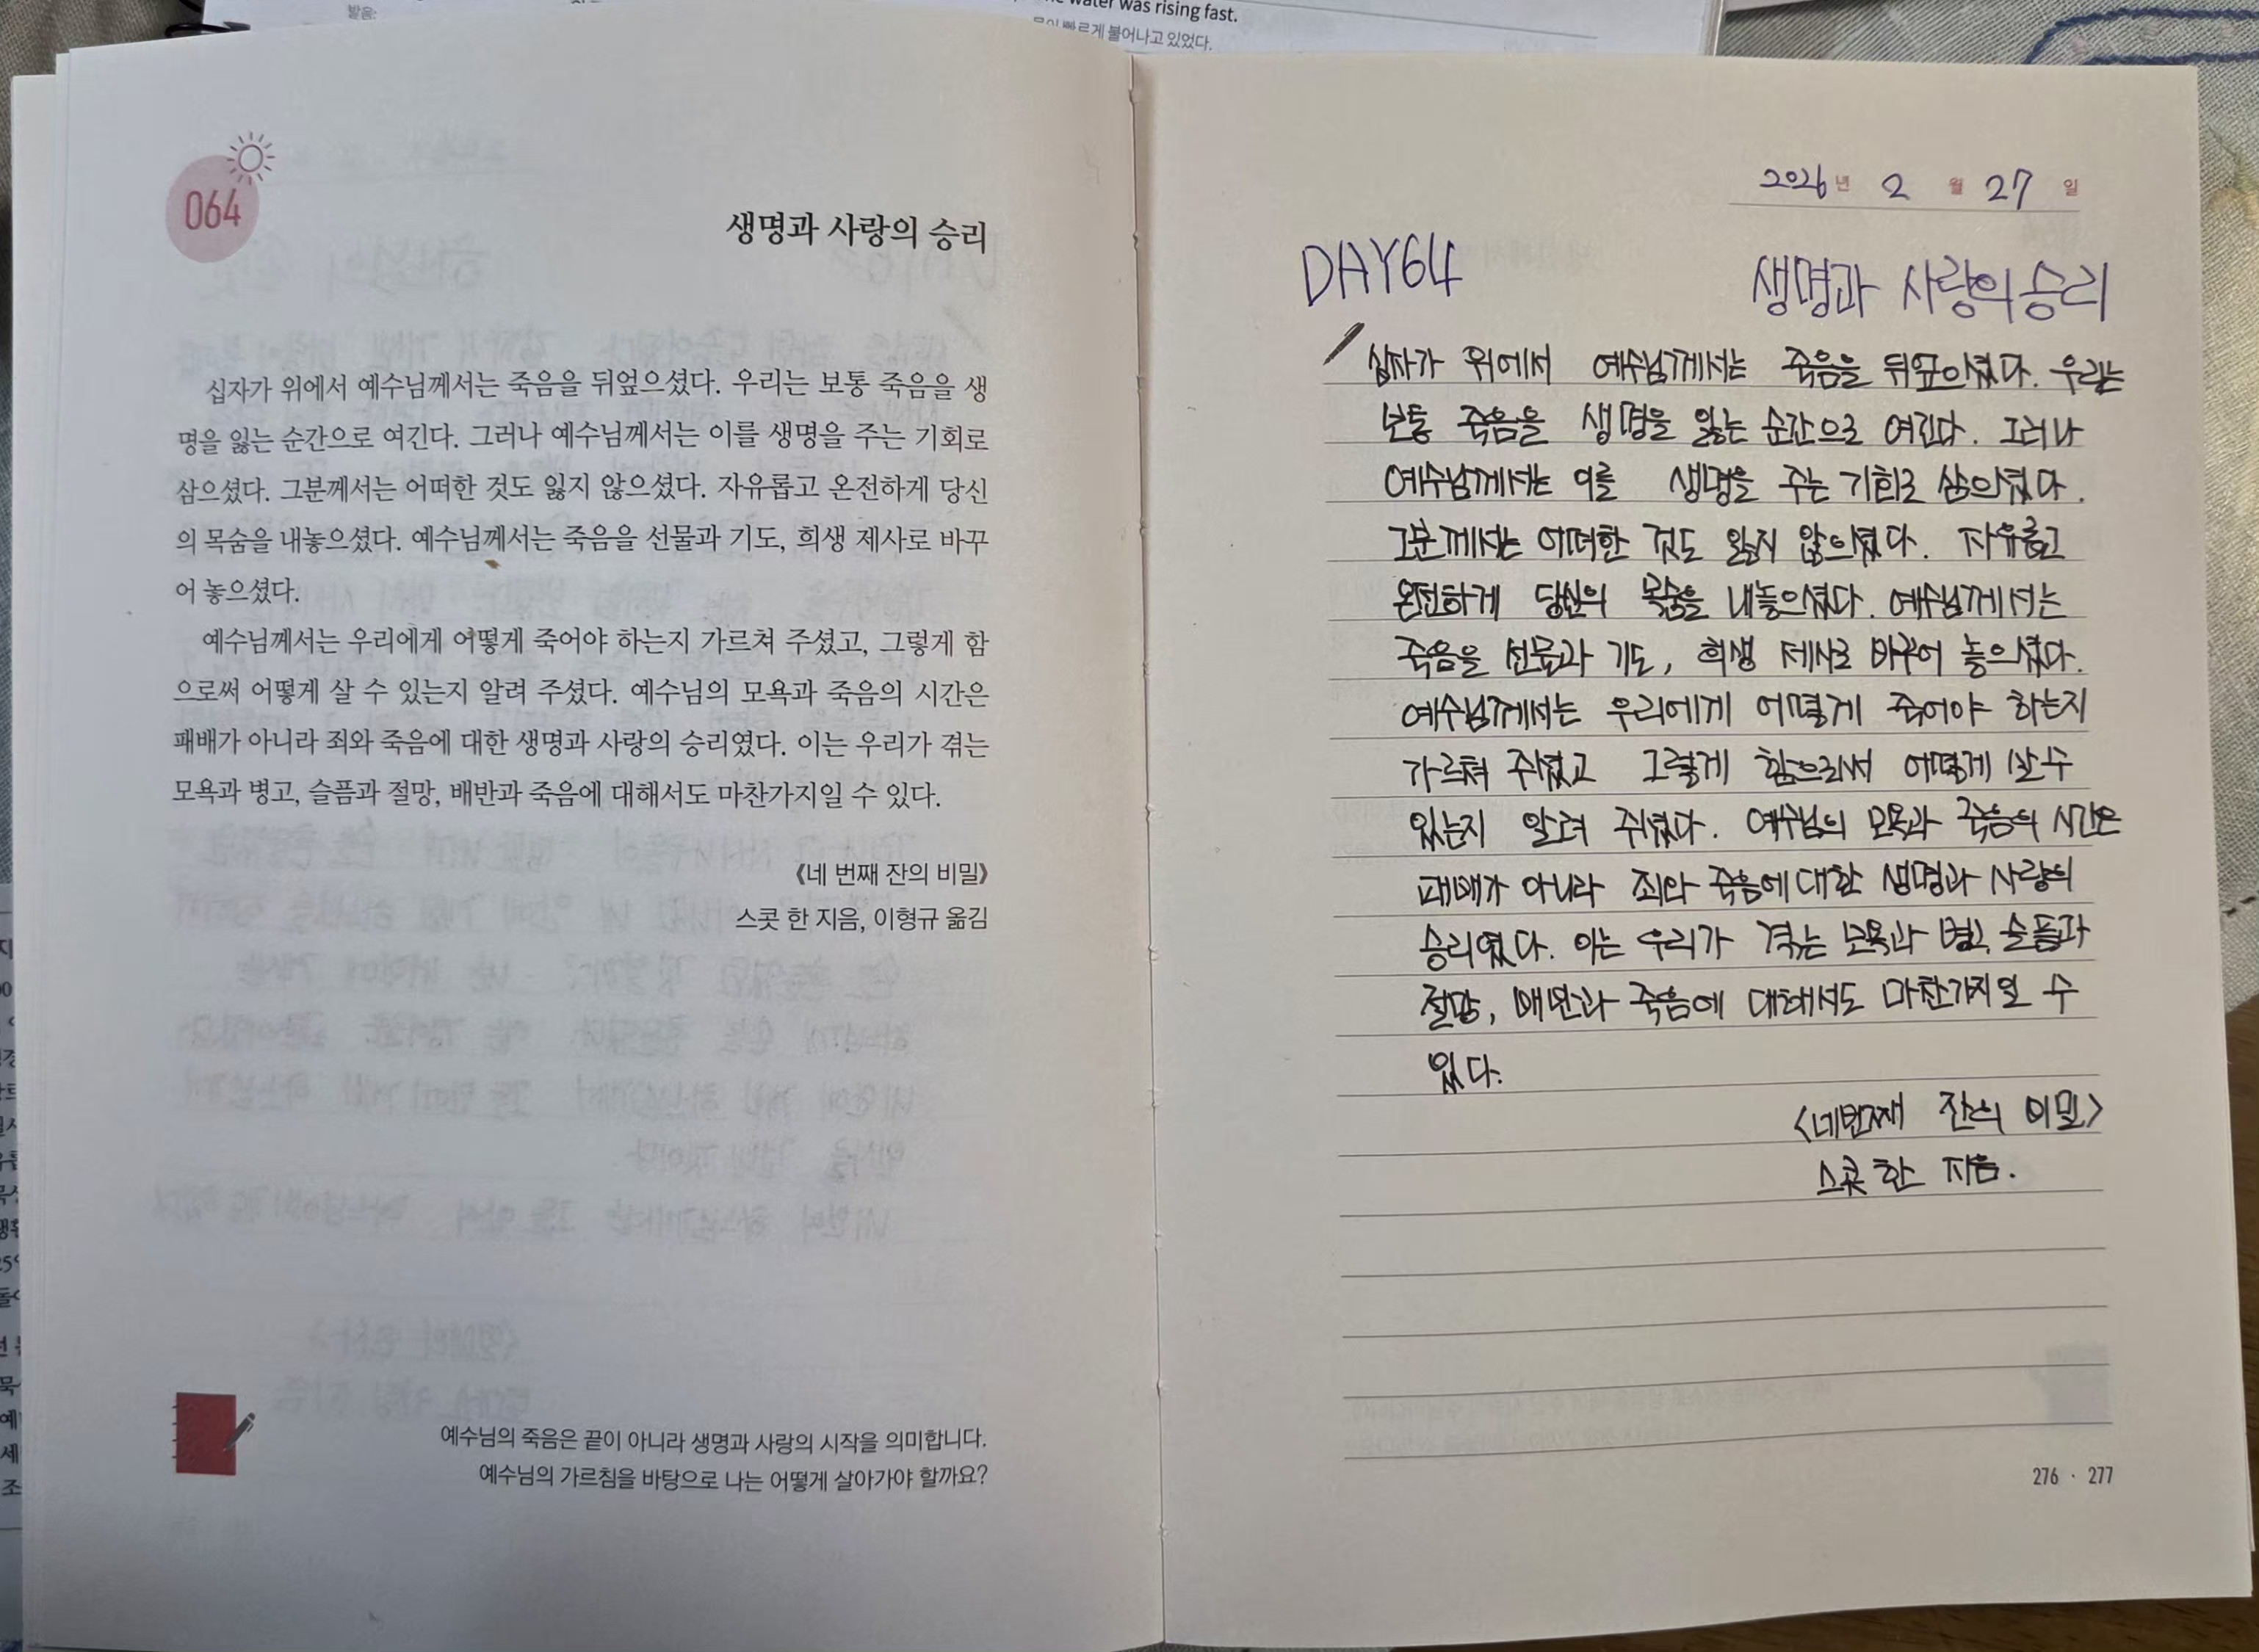 water was rising fast.
빠르게 불어나고 있었다.
발음:
064
생명과 사랑의 승리
십자가 위에서 예수님께서는 죽음을 뒤엎으셨다. 우리는 보통 죽음을 생
명을 잃는 순간으로 여긴다. 그러나 예수님께서는 이를 생명을 주는 기회로
삼으셨다. 그분께서는 어떠한 것도 잃지 않으셨다. 자유롭고 온전하게 당신
의 목숨을 내놓으셨다. 예수님께서는 죽음을 선물과 기도, 희생 제사로 바꾸
어 놓으셨다.
예수님께서는 우리에게 어떻게 죽어야 하는지 가르쳐 주셨고, 그렇게 함
으로써 어떻게 살 수 있는지 알려 주셨다. 예수님의 모욕과 죽음의 시간은
패배가 아니라 죄와 죽음에 대한 생명과 사랑의 승리였다. 이는 우리가 겪는
모욕과 병고, 슬픔과 절망, 배반과 죽음에 대해서도 마찬가지일 수 있다.
《네 번째 잔의 비밀》
스콧 한 지음, 이형규 옮김
예수님의 죽음은 끝이 아니라 생명과 사랑의 시작을 의미합니다.
예수님의 가르침을 바탕으로 나는 어떻게 살아가야 할까요?
2026년 2 월 27 일
DAY64 생명과 사랑의 승리
십자가 위에서 예수님께서는 죽음을 뒤엎으셨다. 우리는
보통 죽음을 생명을 잃는 순간으로 여긴다. 그러나
예수님께서는 이를 생명을 주는 기회로 삼으셨다.
그분께서는 어떠한 것도 잃지 않으셨다. 자유롭고
온전하게 당신의 목숨을 내놓으셨다. 예수님께서는
죽음을 선물과 기도, 희생 제사로 바꾸어 놓으셨다.
예수님께서는 우리에게 어떻게 죽어야 하는지
가르쳐 주셨고 그렇게 함으로써 어떻게 살 수
있는지 알려 주셨다. 예수님의 모욕과 죽음의 시간은
패배가 아니라 죄와 죽음에 대한 생명과 사랑의
승리였다. 이는 우리가 겪는 모욕과 병고, 슬픔과
절망, 배반과 죽음에 대해서도 마찬가지일 수
있다.
<네번째 잔의 비밀>
스콧 한 지음.
276 · 277